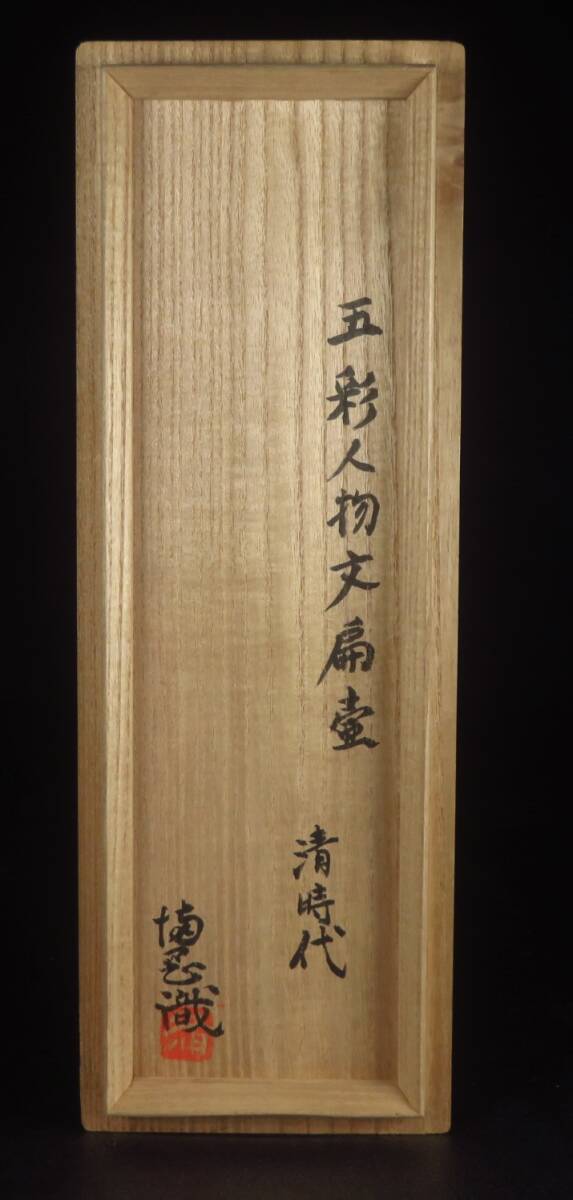 五彩人物文扁壷
清時代
識